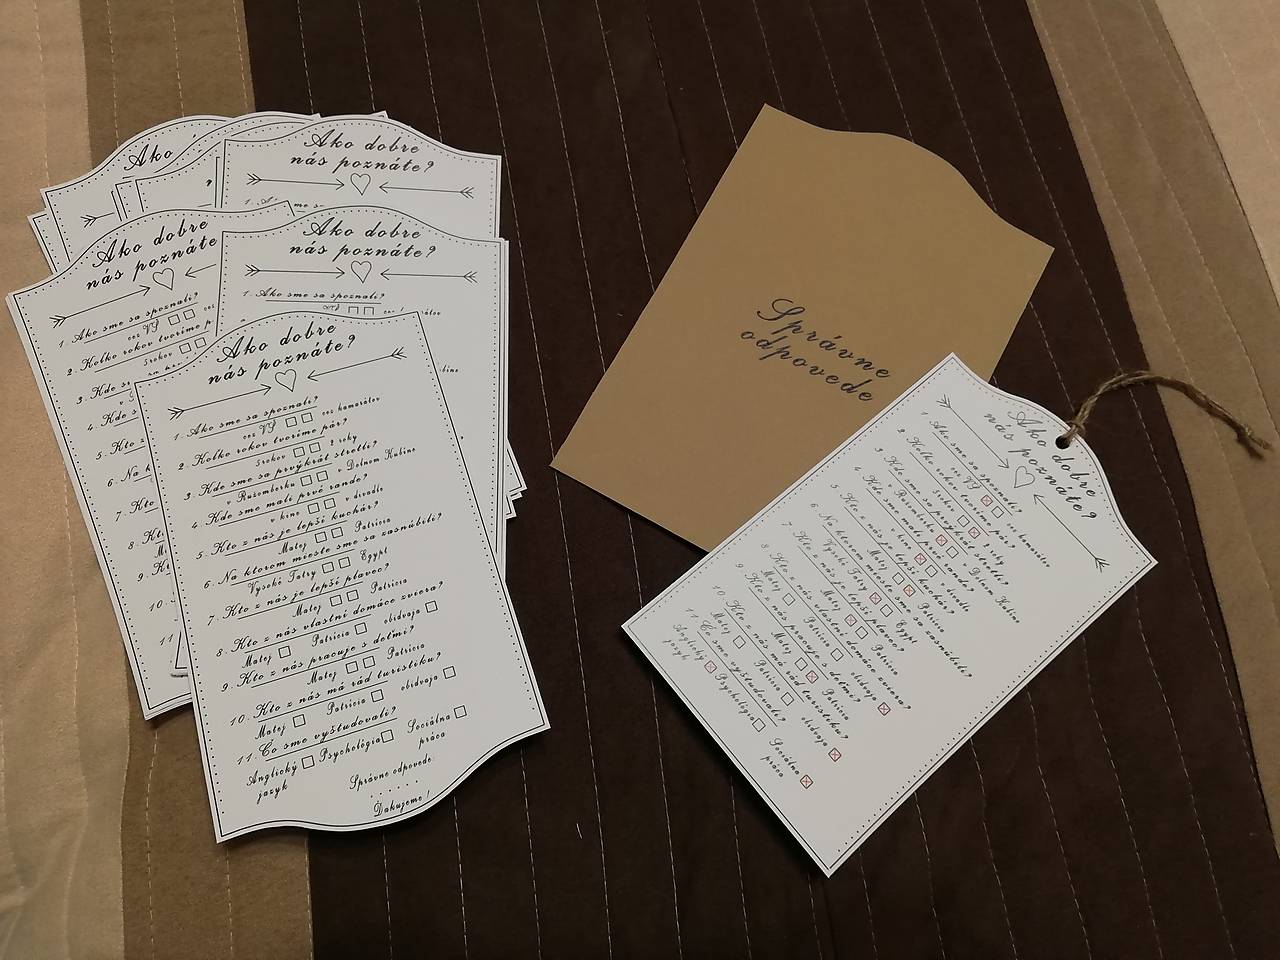 Ako
Ako dobre
nás poznáte?
Ako dobre
nás poznáte
1. Ako sme sa spoznali?
cez VŠ
2. Koľko rokov tvoríme
5rokov
3. Kde
4. Kde
5. Kto
6. Na
7. Kto
8. Kto
9. Kto
10.
11
Ako dobre
nás poznáte?
1. Ako sme sa spoznali?
Ako dobre
nás poznáte?
1. Ako sme sa spoznali?
cez VŠ cez kamarátov
2. Koľko rokov tvoríme pár?
5rokov 2 roky
3. Kde sme sa prvýkrát stretli?
v Ružomberku v Dolnom Kubíne
4. Kde sme mali prvé rande?
v kine v divadle
5. Kto z nás je lepší kuchár?
Matej Patrícia
6. Na ktorom mieste sme sa zasnúbili?
Vysoké Tatry Egypt
7. Kto z nás je lepší plavec?
Matej Patrícia
8. Kto z nás vlastní domáce zviera?
Matej Patrícia obidvaja
9. Kto z nás pracuje s deťmi?
Matej Patrícia
10. Kto z nás má rád turistiku?
Matej Patrícia obidvaja
11. Čo sme vyštudovali?
Anglický Psychológia Sociálna
jazyk práca
Správne odpovede
Ďakujeme!
Správne
odpovede
Ako dobre
nás poznáte?
1. Ako sme sa spoznali?
cez VŠ cez kamarátov
2. Koľko rokov tvoríme pár?
5rokov 2 roky
3. Kde sme sa prvýkrát stretli?
v Ružomberku v Dolnom Kubíne
4. Kde sme mali prvé rande?
v kine v divadle
5. Kto z nás je lepší kuchár?
Matej Patrícia
6. Na ktorom mieste sme sa zasnúbili?
Vysoké Tatry Egypt
7. Kto z nás je lepší plavec?
Matej Patrícia
8. Kto z nás vlastní domáce zviera?
Matej Patrícia obidvaja
9. Kto z nás pracuje s deťmi?
Matej Patrícia
10. Kto z nás má rád turistiku?
Matej Patrícia obidvaja
11. Čo sme vyštudovali?
Anglický Psychológia Sociálna
jazyk práca